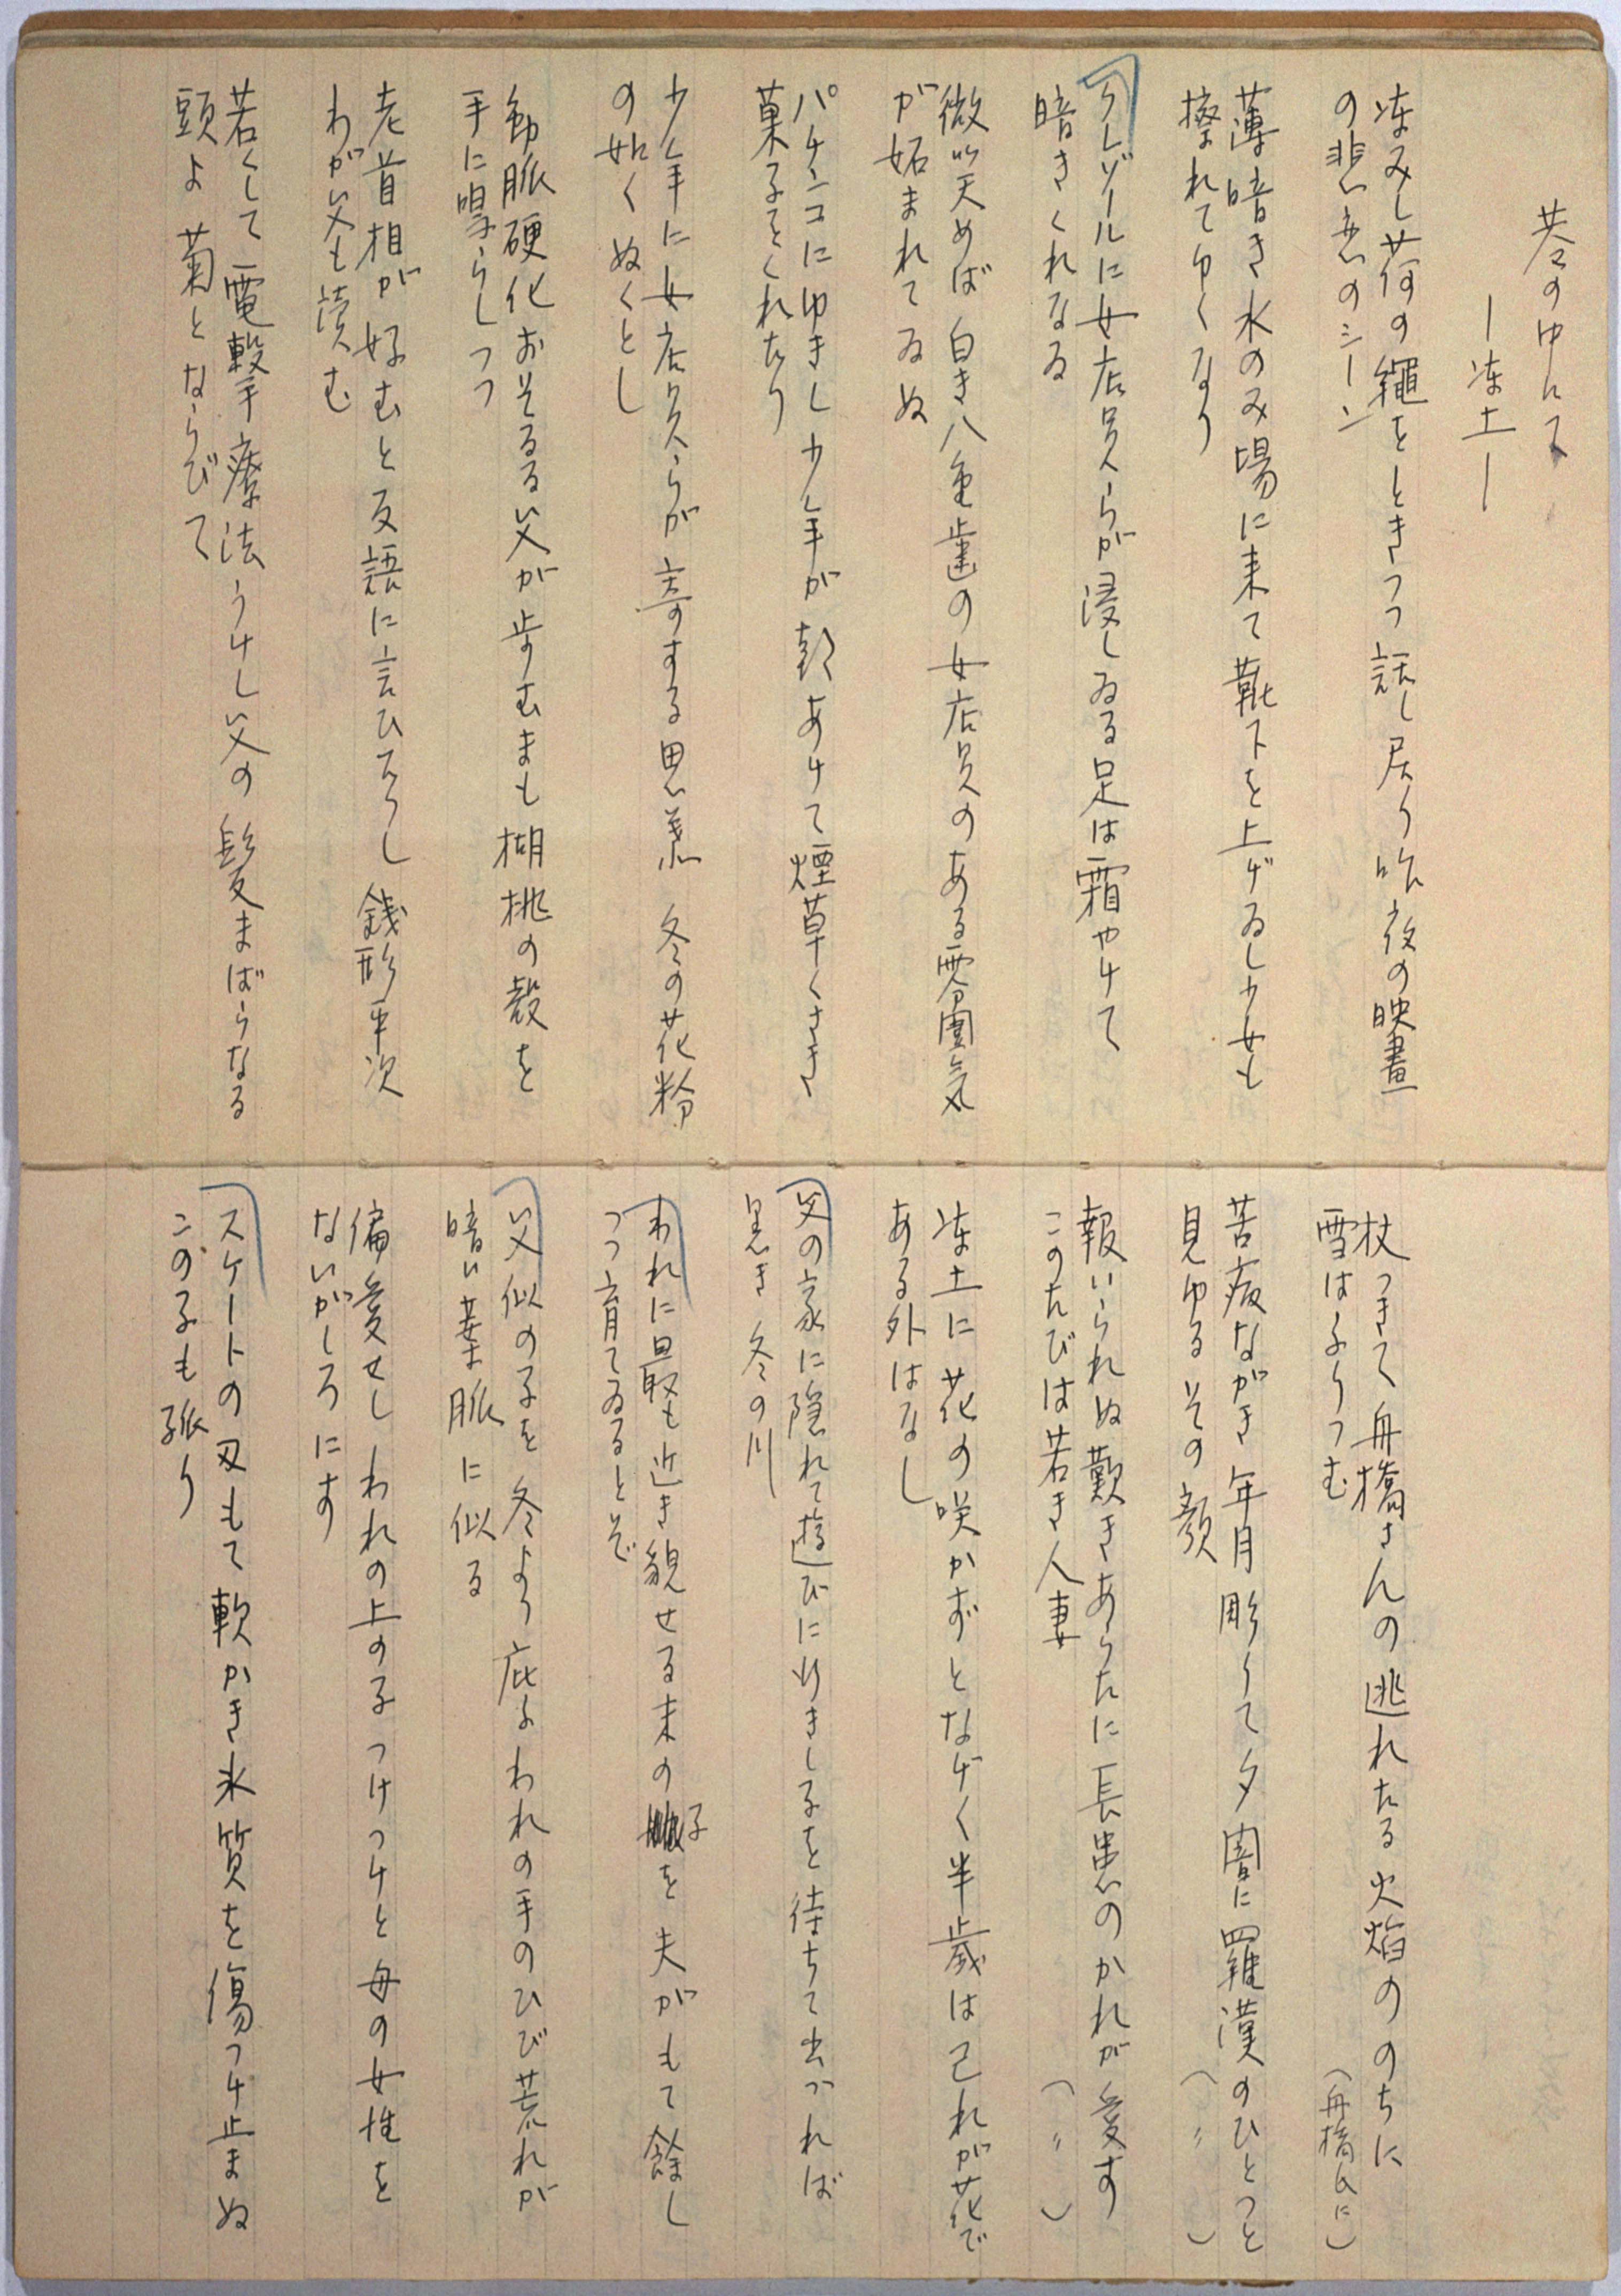 巷の中にて
―凍土―
凍みし荷の繩をときつつ話し居り昨夜の映畫
の悲恋のシーン
薄暗き水のみ場に来て靴下を上げゐし少女も
擦れてゆくなり
クレゾールに女店員らが浸しゐる足は霜やけて
暗きくれなゐ
微笑めば白き八重歯の女店員のある雰圍気
が妬まれてゐぬ
パチンコにゆきし少年が頬あけて煙草くさき
菓子をくれたり
少年に女店員らが寄する思慕 冬の花粉
の如くぬくとし
動脈硬化おそるる父が歩むまも胡桃の殻を
手に鳴らしつつ
老首相が好むと反語に言ひてらし銭形平次
わが父も読む
若くして電撃療法うけし父の髪まばらなる
頭よ 菊とならびて
杖つきて舟橋さんの逃れたる火焰ののちに
雪はふりつむ
(舟橋氏に)
苦疲ながき年月彫りて夕闇に羅漢のひとつと
見ゆるその顔
(〃)
報いられぬ歎きあらたに長患のかれが愛す
このたびは若き人妻
(〃)
凍土に花の咲かずとなげく半歳は己れが花で
ある外はなし
父の家に隠れて遊びに行きし子を待ちて出づれば
黒き冬の川
われに最も近き貌せる末の子を夫がもて餘し
つつ育てゐるとぞ
父似の子を冬より庇ふわれの手のひび荒れが
暗い葉脈に似る
偏愛せしわれの上の子つけつけと母の女性を
ないがしろにす
スケートの刃もて軟かき氷質を傷つけ止まぬ
この子も孤り